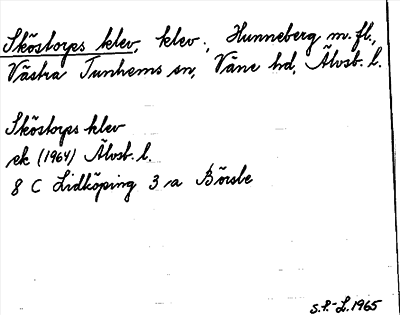 Sköstorps klev, klev, Hunneberg m.fl.,
Västra Tunhems sn, Väne hd, Älvsb. l.
Sköstorps klev
ek (1964) Älvsb. l.
8 C Lidköping 3 a Börsle
S.F.-L. 1965